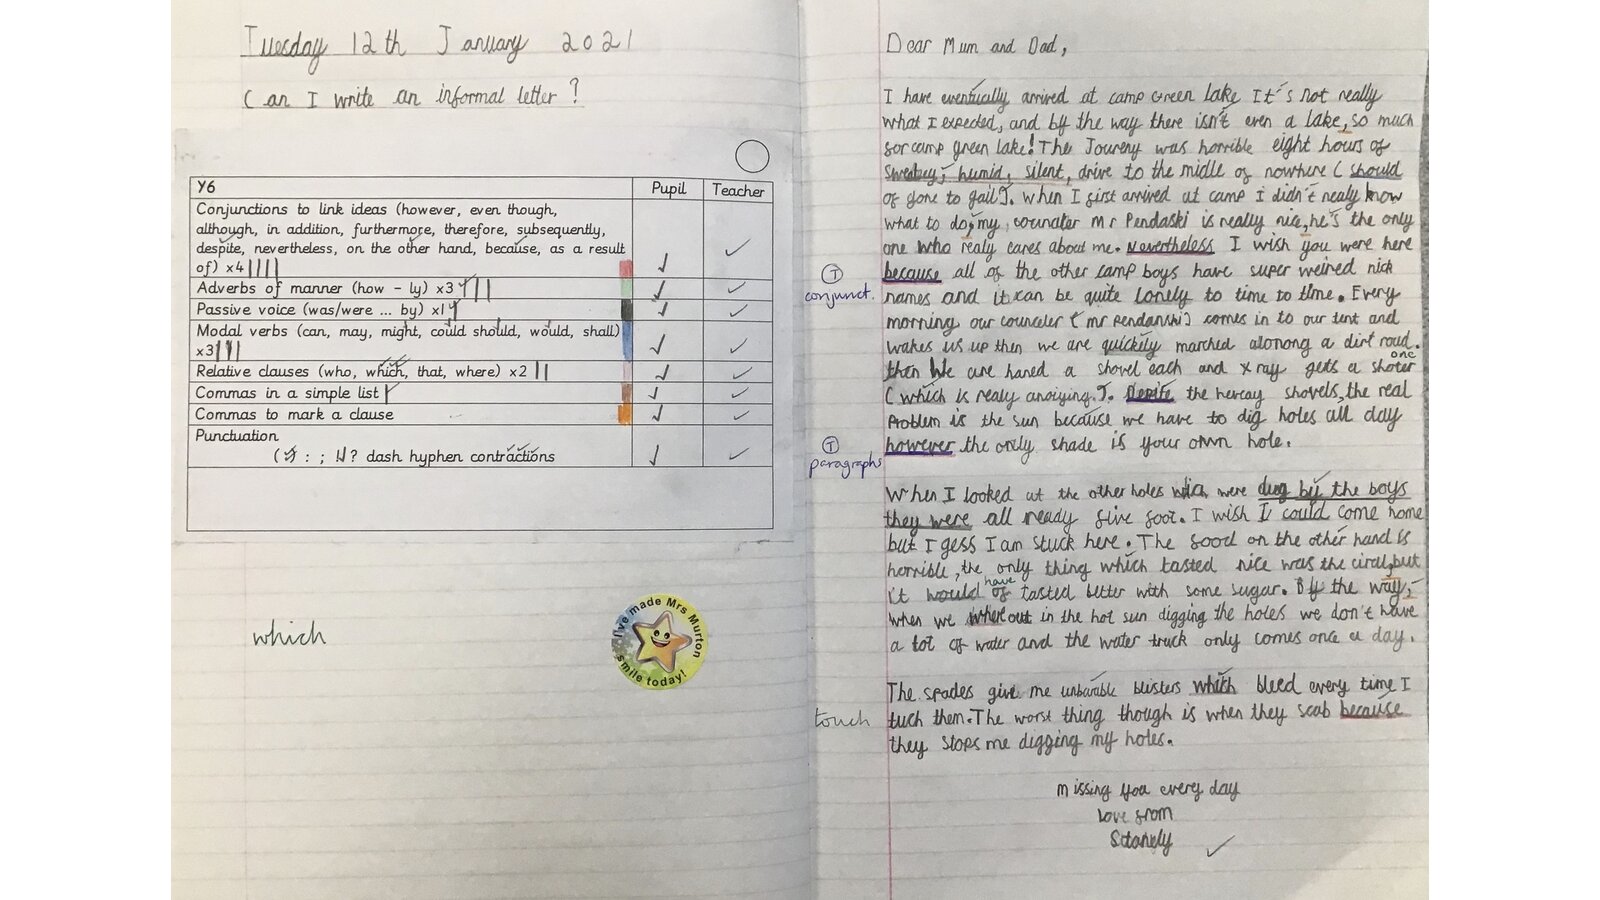 Tuesday 12th January 2021
Can I write an informal letter?
Y6 Pupil Teacher
Conjunctions to link ideas (however, even though,
although, in addition, furthermore, therefore, subsequently,
despite, nevertheless, on the other hand, because, as a result
of) x4
Adverbs of manner (how - ly) x3
Passive voice (was/were ... by) x1
Modal verbs (can, may, might, could should, would, shall)
x3
Relative clauses (who, which, that, where) x2
Commas in a simple list
Commas to mark a clause
Punctuation
( ) : ; ! ? dash hyphen contractions
which
I've made Mrs Murton
smile today!
Dear Mum and Dad,
I have eventically arrived at camp Green lake It's not really
what I expected, and by the way there isn't even a lake, so much
for camp green lake! The Joureny was horrible eight hours of
Sweatey, humid, silent, drive to the midle of nowhere (should
of gone to gail). When I first arrived at camp I didn't realy know
what to do, my counater Mr Pendaski is really nice, he's the only
one who realy cares about me. Nevertheless I wish you were here
because all of the other camp boys have super weired nick
names and it can be quite lonely to time to time. Every
morning our counceler (mr pendanski) comes in to our tent and
wakes us up then we are quickily marched alonong a dirt road.
then We are haned a shovel each and x ray gets a shoter one
(which is realy anoiying.). Depite the hevcay shovels, the real
Problem is the sun because we have to dig holes all day
however the only shade is your own hole.
T
conjunct.
T
paragraphs
When I looked at the other holes were dug by the boys
they were all ready five foot. I wish I could come home
but I gess I am stuck here. The food on the other hand is
horrible, the only thing which tasted nice was the ciral, but
it would of have tasted better with some sugar. By the way,
when we out in the hot sun digging the holes we don't have
a lot of water and the water truck only comes once a day.
The spades give me unbarable blisters which bleed every time I
tuch them. The worst thing though is when they scab because
they stops me digging my holes.
touch
missing you every day
love from
Stanely